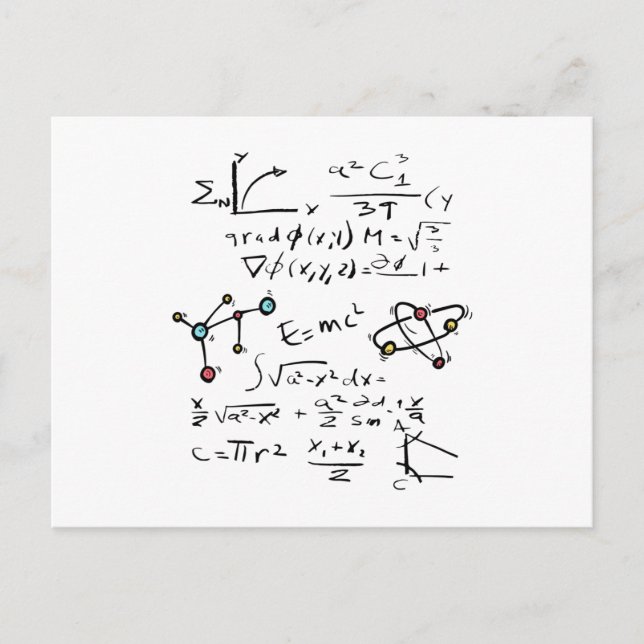 Σ_N Y X a² C₁³ / 3T (Y
grad φ(x,1) M = √(3/3)
∇φ(x,y,2) = ∂φ 1 +
E = mc²
∫ √(a² - x²) dx =
x/2 √(a² - x²) + a²/2 ∂d/sin -1 x/a
C = πr² (x₁ + x₂)/2 A C